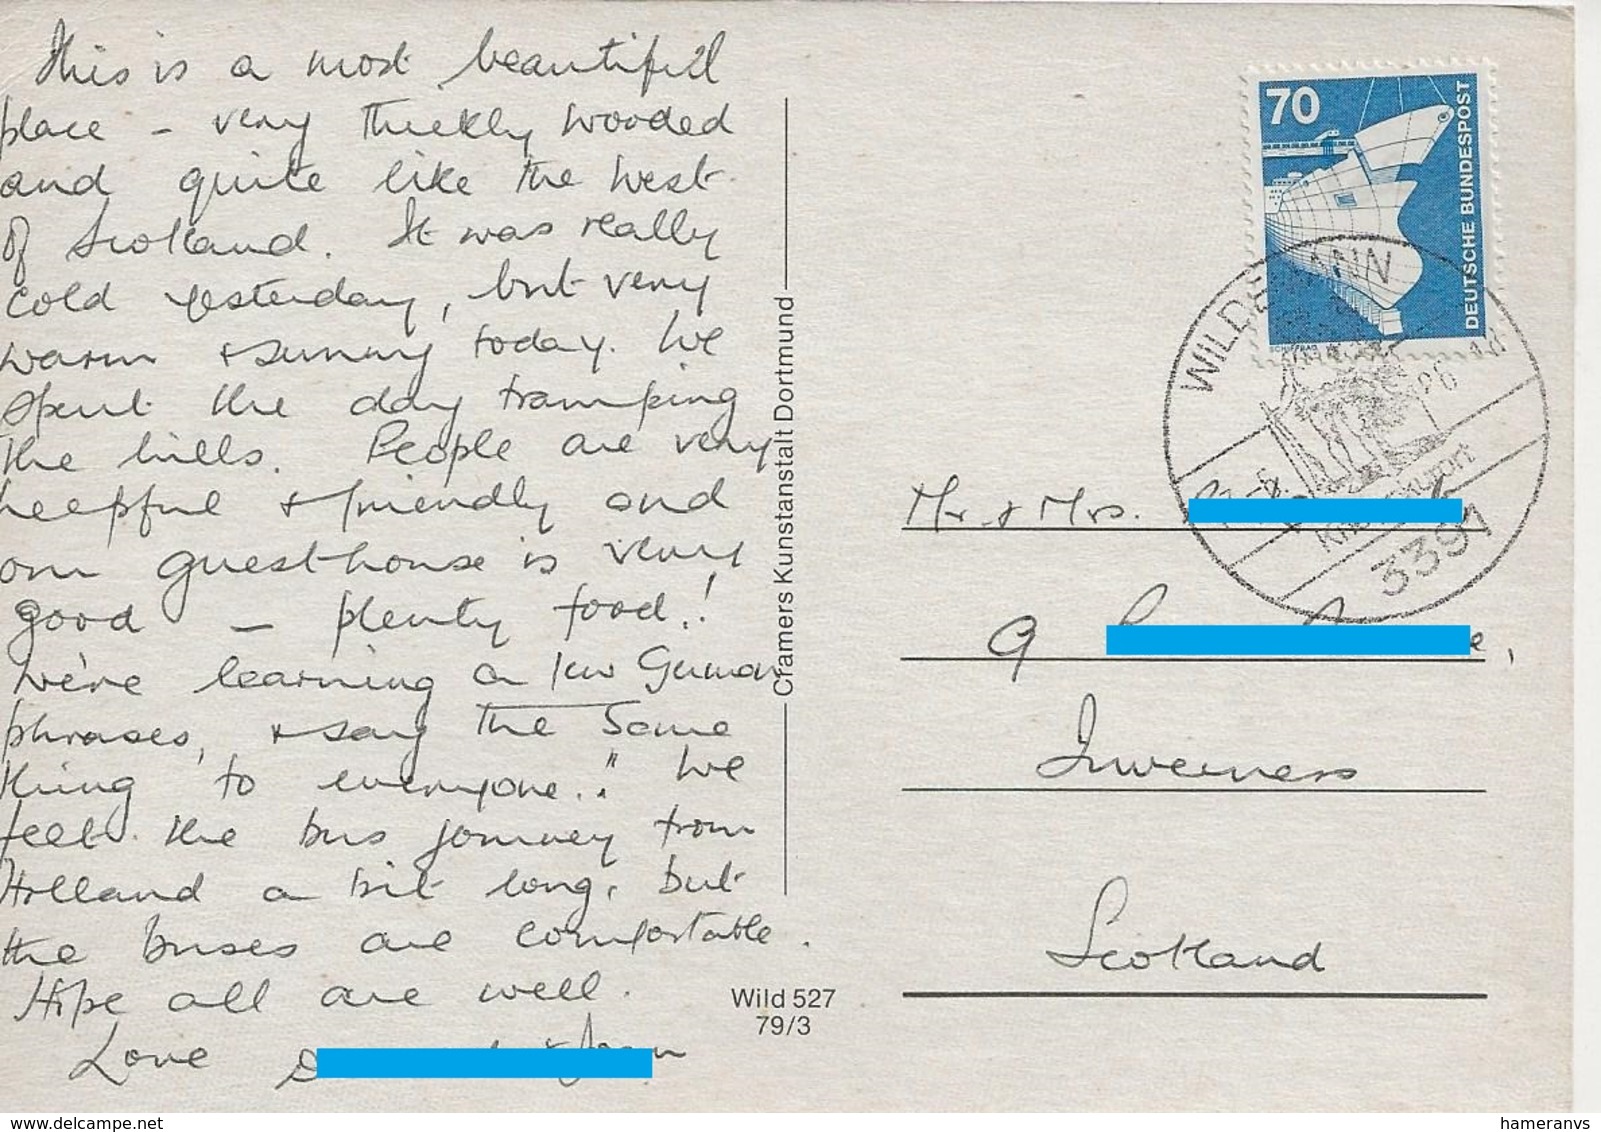 This is a most beautiful
place - very thickly wooded
and quite like the west
of Scotland. It was really
cold yesterday, but very
warm & sunny today. We
spent the day tramping
the hills. People are very
helpful & friendly and
our guest-house is very
good - plenty food.!
We're learning a few German
phrases, & say the same
thing "to everyone.." We
felt the bus journey from
Holland a bit long, but
the buses are comfortable.
Hope all are well.
Love
Cramers Kunstanstalt Dortmund
Wild 527
79/3
70
DEUTSCHE BUNDESPOST
WILDEMANN
3391
Mr & Mrs.
9
Inverness
Scotland
delcampe.net
hameranvs